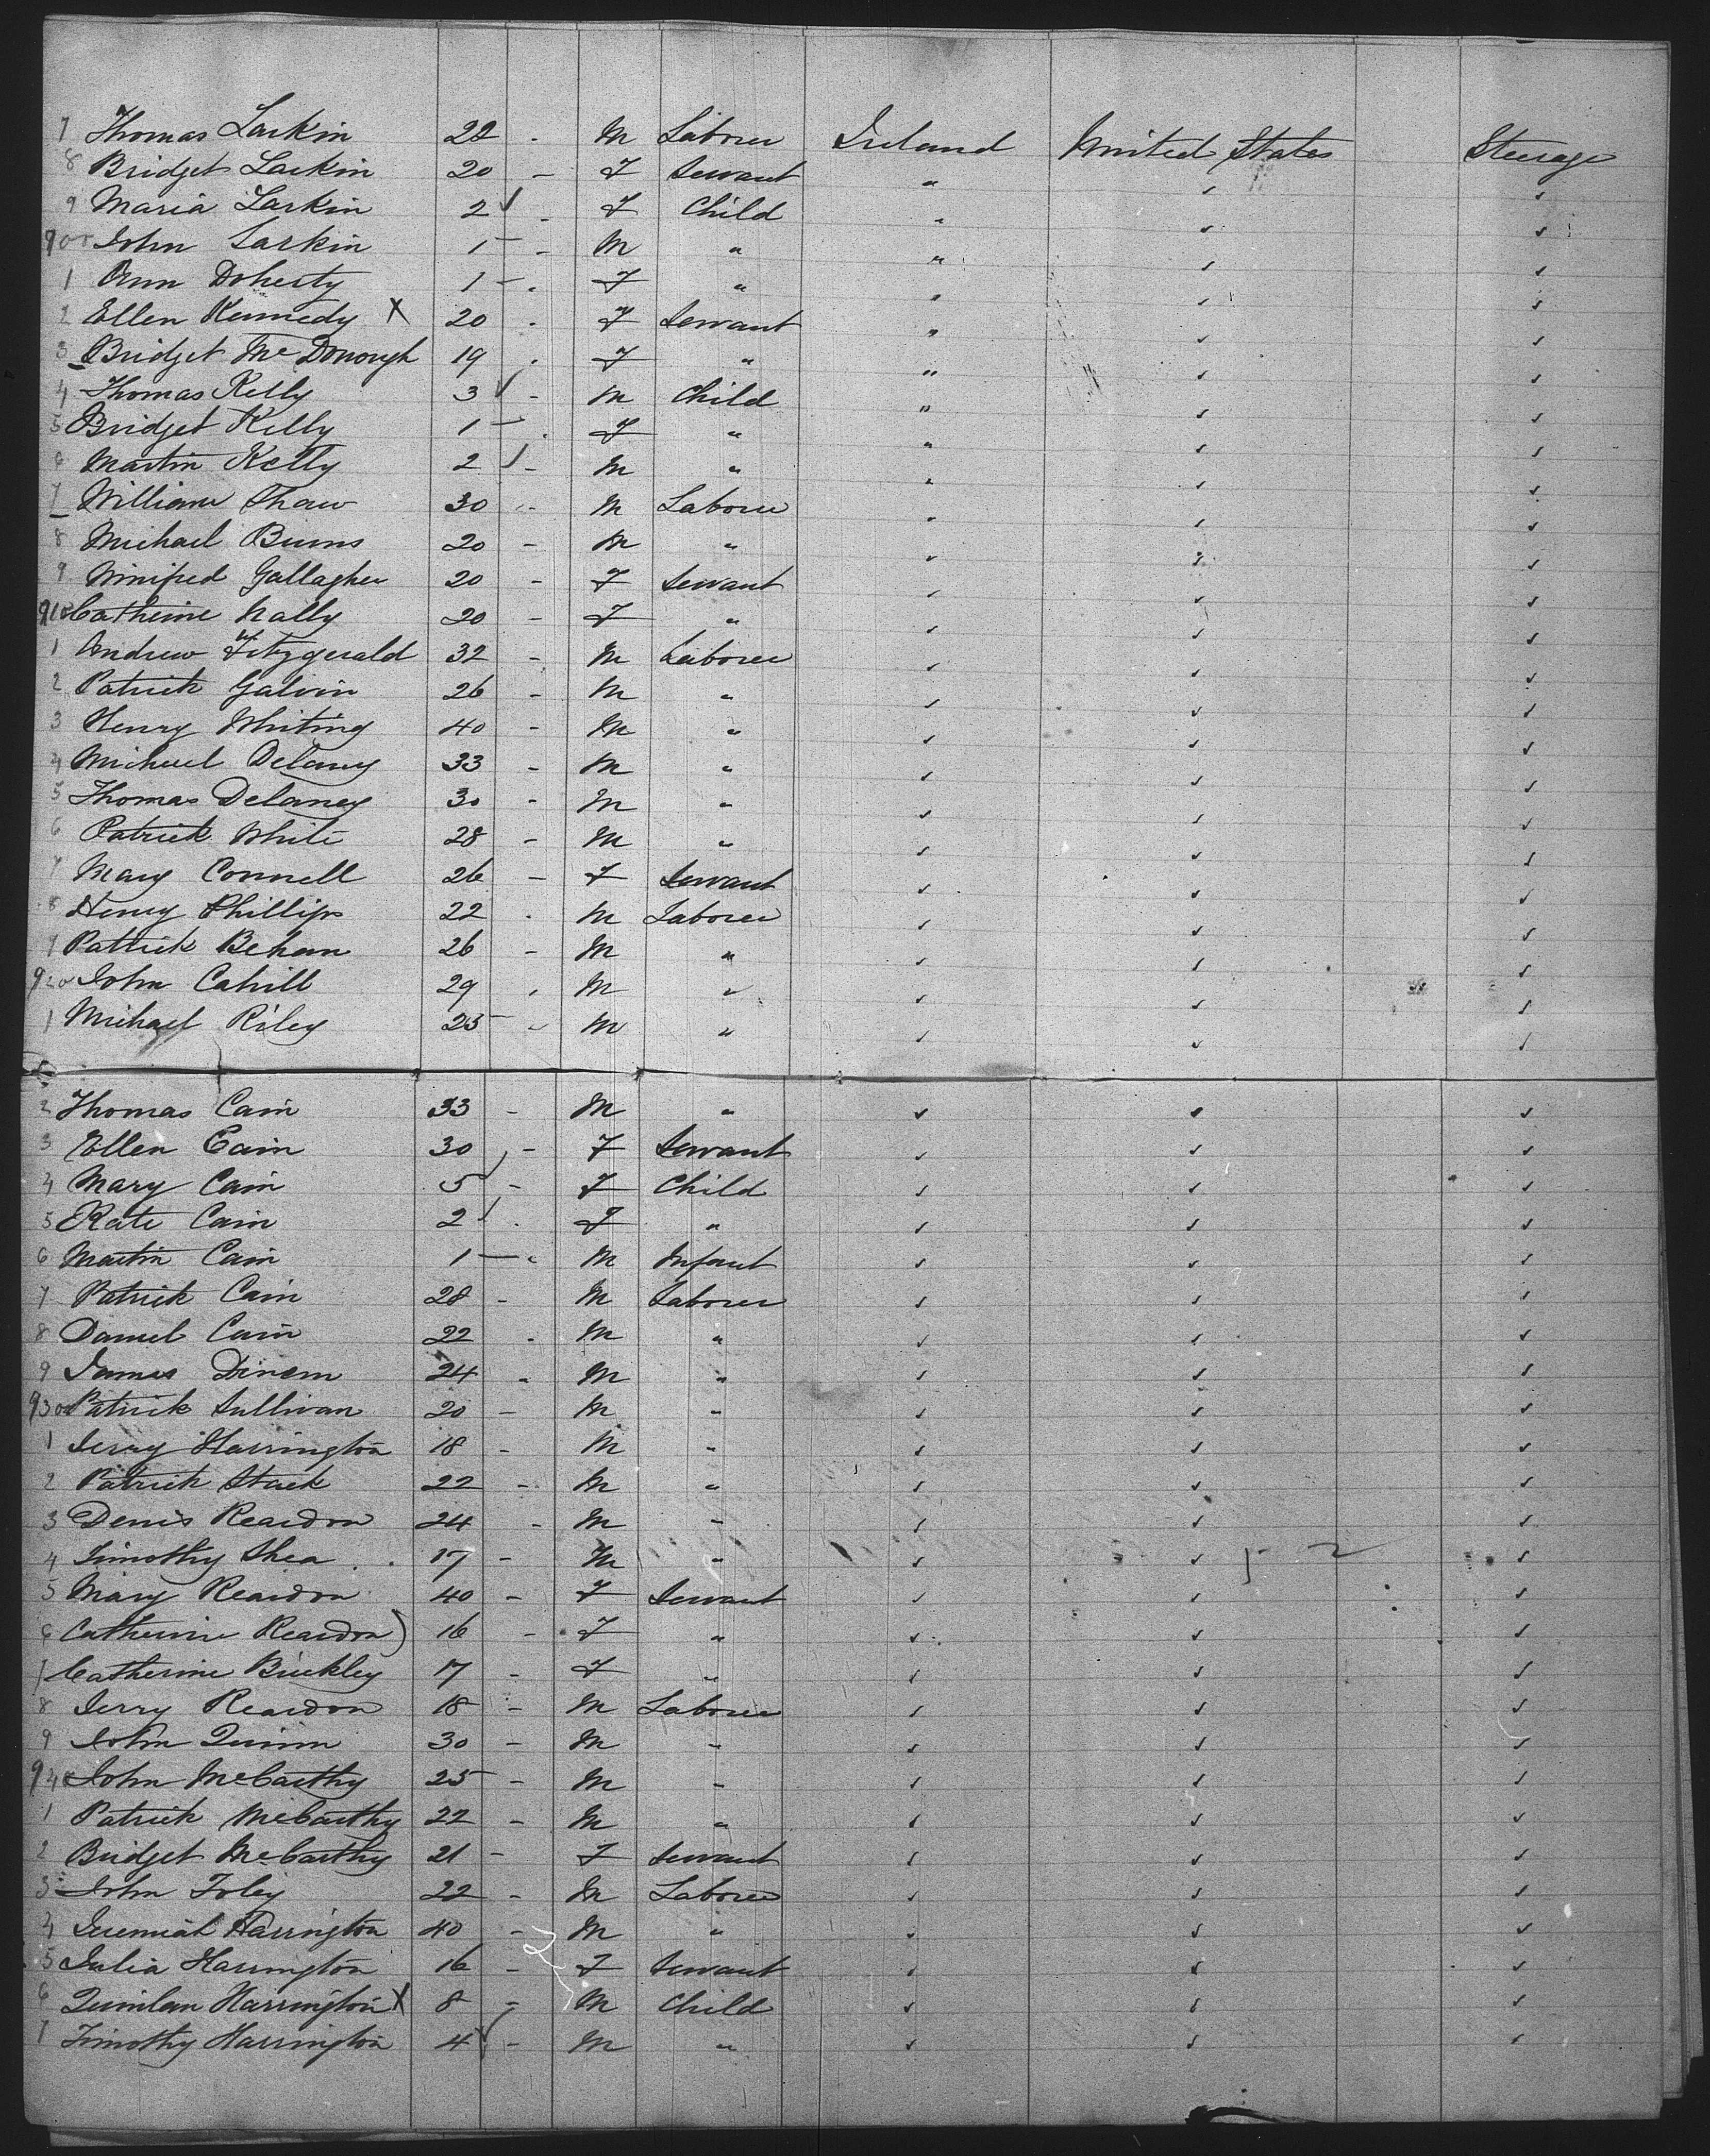 7 Thomas Larkin 22 - M Laborer Ireland United States Steerage
8 Bridget Larkin 20 - F Servant " " "
9 Maria Larkin 2 ✓ - F Child " " "
900 John Larkin 1 - - M " " " "
1 Ann Doherty 1 - - F " " " "
2 Ellen Kennedy X 20 - F Servant " " "
3 Bridget McDonough 19 - F " " " "
4 Thomas Kelly 3 ✓ - M Child " " "
5 Bridget Kelly 1 - - F " " " "
6 Martin Kelly 2 ✓ - M " " " "
7 William Shaw 30 - M Laborer " " "
8 Michael Burns 20 - M " " " "
9 Winifred Gallagher 20 - F Servant " " "
910 Catherine Nally 20 - F " " " "
1 Andrew Fitzgerald 32 - M Laborer " " "
2 Patrick Galvin 26 - M " " " "
3 Henry Whiting 40 - M " " " "
4 Michael Delany 33 - M " " " "
5 Thomas Delaney 30 - M " " " "
6 Patrick White 28 - M " " " "
7 Mary Connell 26 - F Servant " " "
8 Henry Phillips 22 - M Laborer " " "
9 Patrick Behan 26 - M " " " "
920 John Cahill 29 - M " " " "
1 Michael Riley 25 - M " " " "
2 Thomas Cain 33 - M " " " "
3 Ellen Cain 30 - F Servant " " "
4 Mary Cain 5 ✓ - F Child " " "
5 Kate Cain 2 ✓ - F " " " "
6 Martin Cain 1 - - M Infant " " "
7 Patrick Cain 28 - M Laborer " " "
8 Daniel Cain 22 - M " " " "
9 James 24 - M " " " "
930 Patrick Sullivan 20 - M " " " "
1 Jerry Harrington 18 - M " " " "
2 Patrick Stack 22 - M " " " "
3 Denis Reardon 24 - M " " " "
4 Timothy Shea 17 - M " " " "
5 Mary Reardon 40 - F Servant " " "
6 Catherine Reardon) 16 - F " " " "
7 Catherine Buckley 17 - F " " " "
8 Jerry Reardon 18 - M Laborer " " "
9 John Quinn 30 - M " " " "
940 John McCarthy 25 - M " " " "
1 Patrick McCarthy 22 - M " " " "
2 Bridget McCarthy 21 - F Servant " " "
3 John Foley 22 - M Laborer " " "
4 Jeremiah Harrington 40 - M " " " "
5 Julia Harrington 16 - F Servant " " "
6 Quinlan Harrington X 8 - M Child " " "
7 Timothy Harrington 4 ✓ - M " " " "